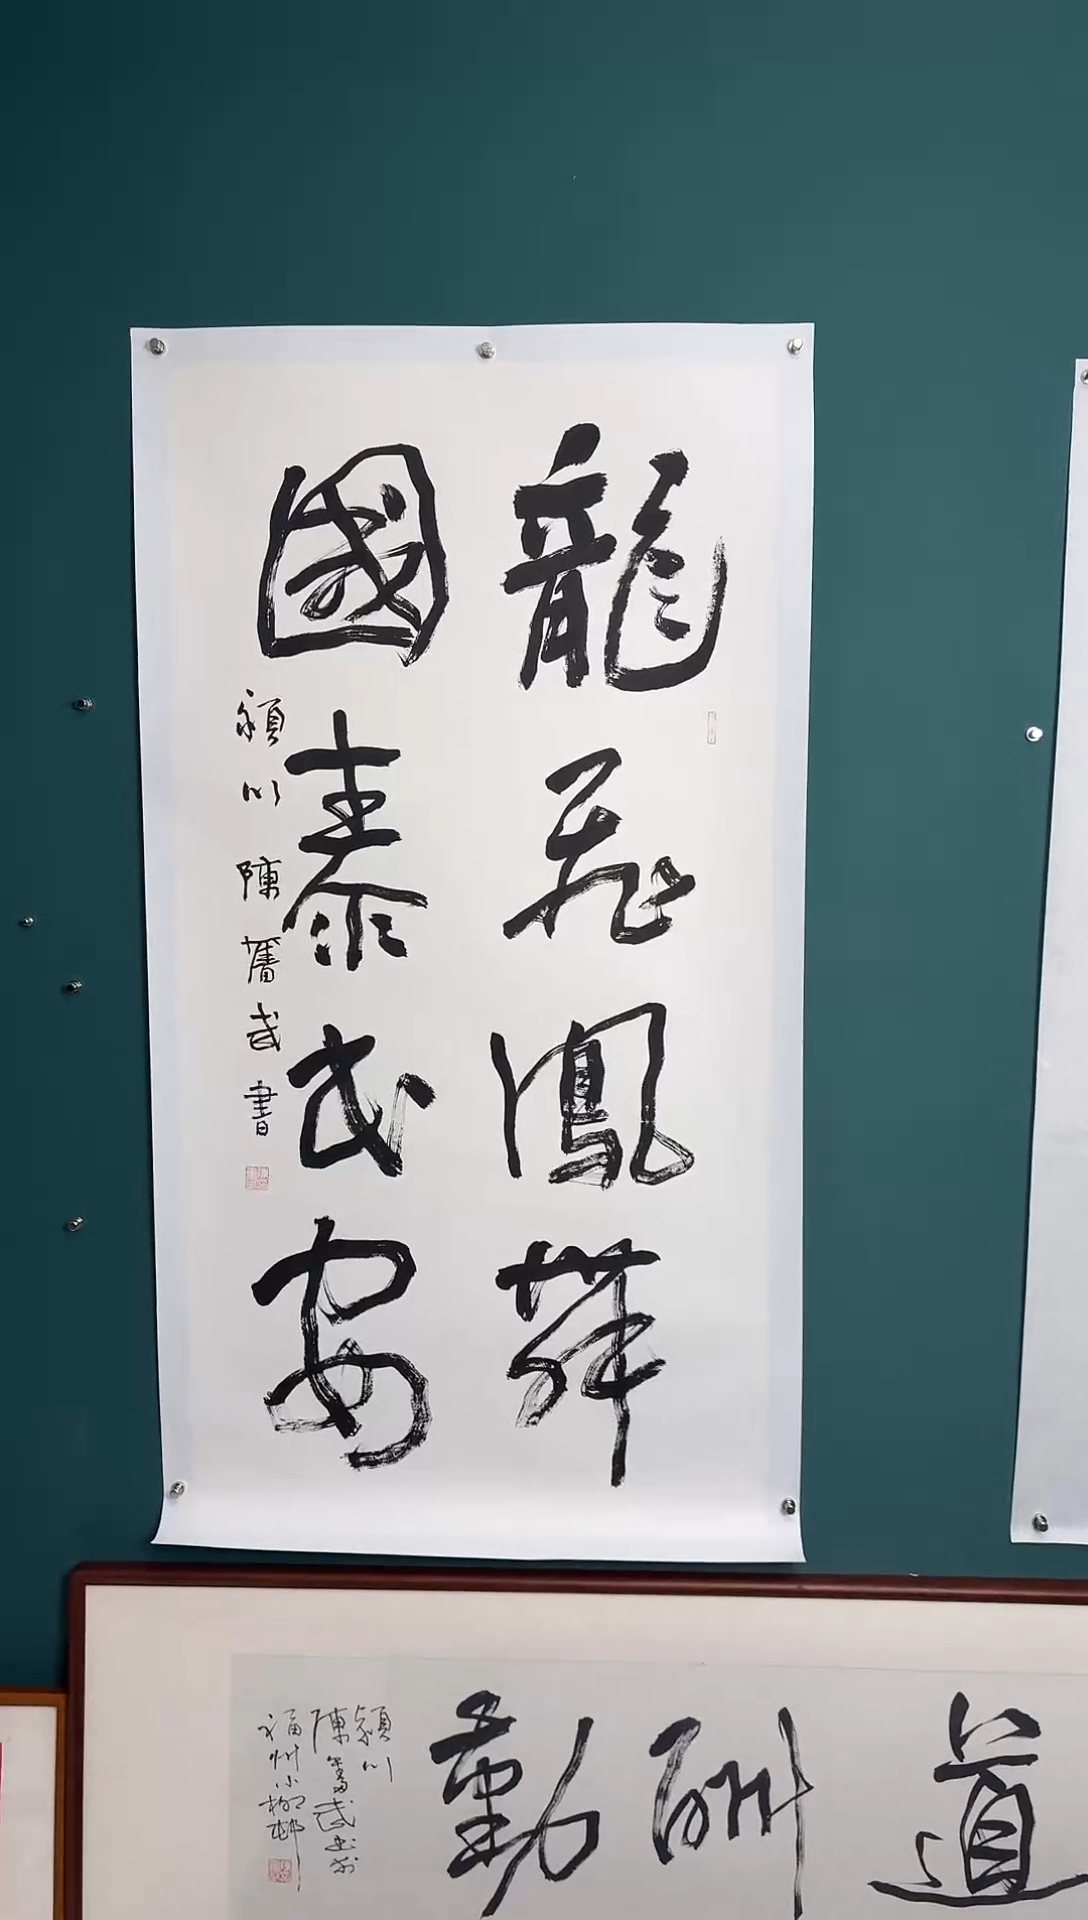 龍飛鳳舞
國泰民安
潁川陳舊武書
道酬勤
潁川
陳舊武書於
福州小柳邨